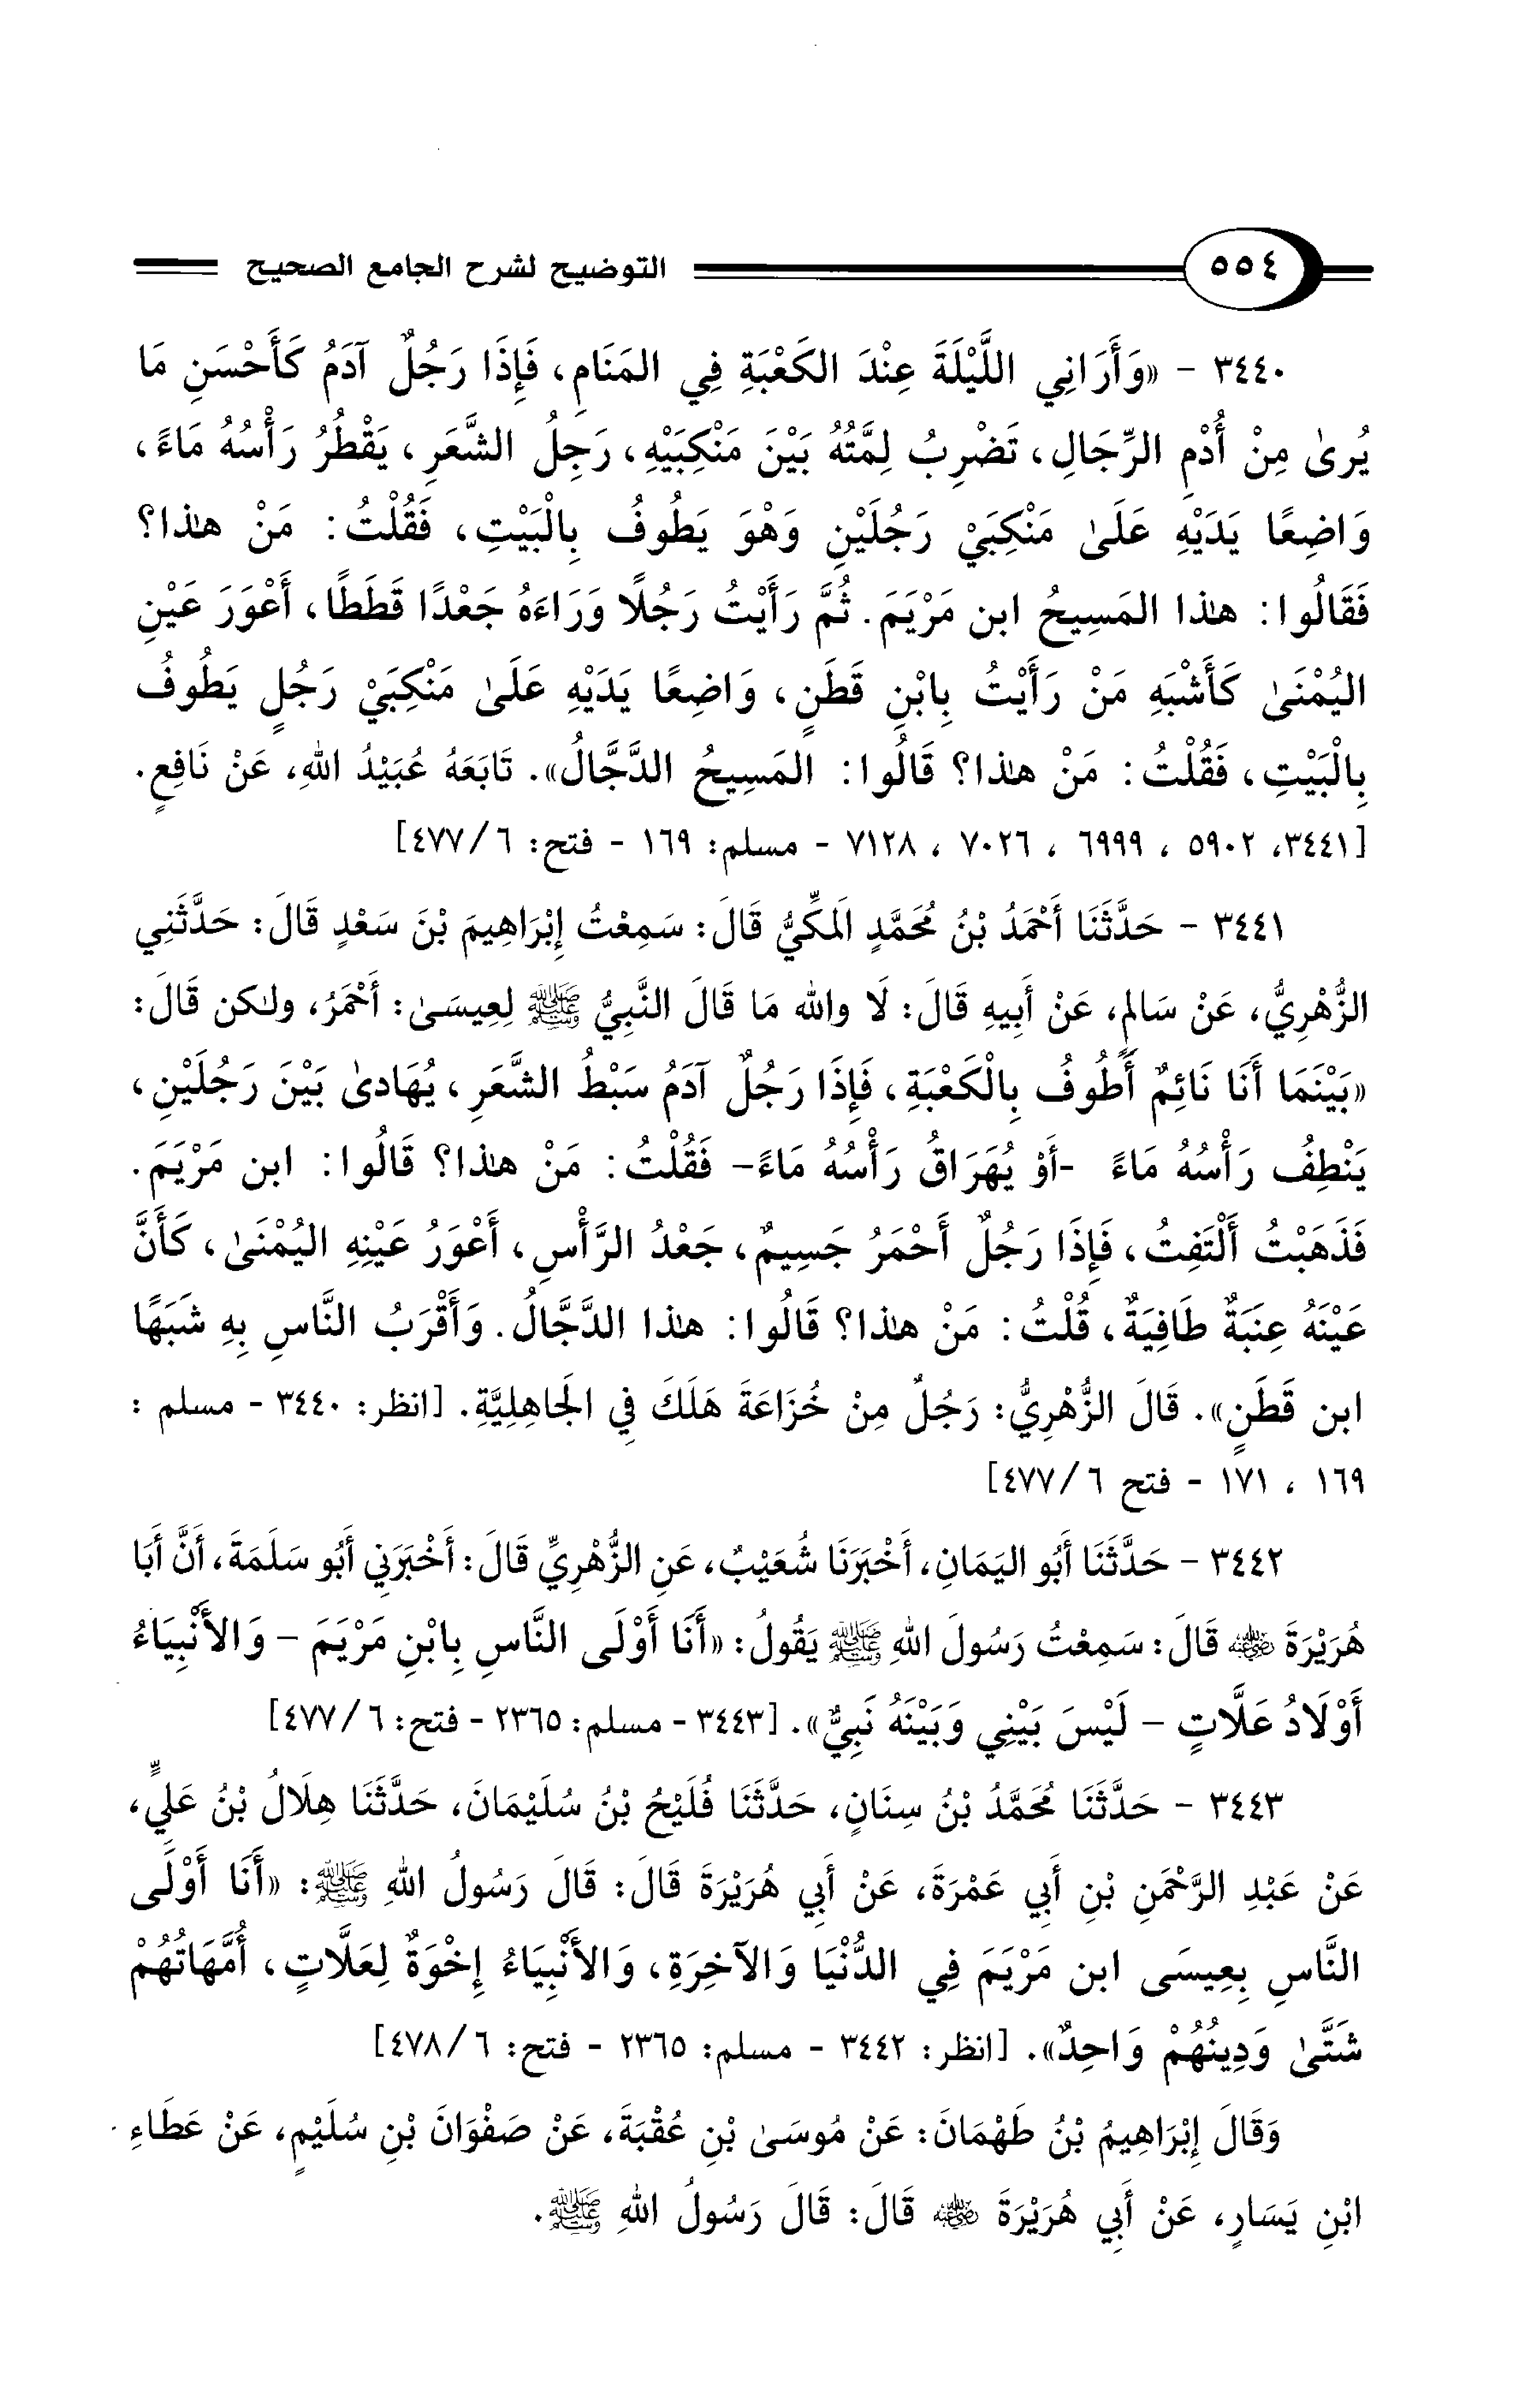 ٥٥٤ التوضيح لشرح الجامع الصحيح
٣٤٤٠ - «وَأَرَانِي اللَّيْلَةَ عِنْدَ الكَعْبَةِ فِي المَنَامِ، فَإِذَا رَجُلٌ آدَمُ كَأَحْسَنِ مَا
يُرىٰ مِنْ أُدْمِ الرِّجَالِ، تَضْرِبُ لِمَّتُهُ بَيْنَ مَنْكِبَيْهِ، رَجِلُ الشَّعَرِ، يَقْطُرُ رَأْسُهُ مَاءً،
وَاضِعًا يَدَيْهِ عَلَىٰ مَنْكِبَيْ رَجُلَيْنِ وَهْوَ يَطُوفُ بِالْبَيْتِ، فَقُلْتُ: مَنْ هٰذا؟
فَقَالُوا: هٰذا المَسِيحُ ابن مَرْيَمَ. ثُمَّ رَأَيْتُ رَجُلًا وَرَاءَهُ جَعْدًا قَطَطًا، أَعْوَرَ عَيْنِ
اليُمْنَىٰ كَأَشْبَهِ مَنْ رَأَيْتُ بِابْنِ قَطَنٍ، وَاضِعًا يَدَيْهِ عَلَىٰ مَنْكِبَيْ رَجُلٍ يَطُوفُ
بِالْبَيْتِ، فَقُلْتُ: مَنْ هٰذا؟ قَالُوا: المَسِيحُ الدَّجَّالُ». تَابَعَهُ عُبَيْدُ اللهِ، عَنْ نَافِعٍ.
[٣٤٤١، ٥٩٠٢ ، ٦٩٩٩ ، ٧٠٢٦ ، ٧١٢٨ - مسلم: ١٦٩ - فتح: ٤٧٧/٦]
٣٤٤١ - حَدَّثَنَا أَحْمَدُ بْنُ مُحَمَّدٍ المَكِّيُّ قَالَ: سَمِعْتُ إِبْرَاهِيمَ بْنَ سَعْدٍ قَالَ: حَدَّثَنِي
الزُّهْرِيُّ، عَنْ سَالِمٍ، عَنْ أَبِيهِ قَالَ: لَا والله مَا قَالَ النَّبِيُّ ﷺ لِعِيسَىٰ: أَحْمَرُ، ولكن قَالَ:
«بَيْنَمَا أَنَا نَائِمٌ أَطُوفُ بِالْكَعْبَةِ، فَإِذَا رَجُلٌ آدَمُ سَبْطُ الشَّعَرِ، يُهَادىٰ بَيْنَ رَجُلَيْنِ،
يَنْطِفُ رَأْسُهُ مَاءً -أَوْ يُهَرَاقُ رَأْسُهُ مَاءً- فَقُلْتُ: مَنْ هٰذا؟ قَالُوا: ابن مَرْيَمَ.
فَذَهَبْتُ أَلْتَفِتُ، فَإِذَا رَجُلٌ أَحْمَرُ جَسِيمٌ، جَعْدُ الرَّأْسِ، أَعْوَرُ عَيْنِهِ اليُمْنَىٰ، كَأَنَّ
عَيْنَهُ عِنَبَةٌ طَافِيَةٌ، قُلْتُ: مَنْ هٰذا؟ قَالُوا: هٰذا الدَّجَّالُ. وَأَقْرَبُ النَّاسِ بِهِ شَبَهًا
ابن قَطَنٍ». قَالَ الزُّهْرِيُّ: رَجُلٌ مِنْ خُزَاعَةَ هَلَكَ فِي الجَاهِلِيَّةِ. [انظر: ٣٤٤٠ - مسلم :
١٦٩ ، ١٧١ - فتح ٤٧٧/٦]
٣٤٤٢ - حَدَّثَنَا أَبُو اليَمَانِ، أَخْبَرَنَا شُعَيْبٌ، عَنِ الزُّهْرِيِّ قَالَ: أَخْبَرَنِي أَبُو سَلَمَةَ، أَنَّ أَبَا
هُرَيْرَةَ رضي الله عنه قَالَ: سَمِعْتُ رَسُولَ اللهِ ﷺ يَقُولُ: «أَنَا أَوْلَى النَّاسِ بِابْنِ مَرْيَمَ - وَالأَنْبِيَاءُ
أَوْلَادُ عَلَّاتٍ - لَيْسَ بَيْنِي وَبَيْنَهُ نَبِيٌّ». [٣٤٤٣ - مسلم: ٢٣٦٥ - فتح: ٤٧٧/٦]
٣٤٤٣ - حَدَّثَنَا مُحَمَّدُ بْنُ سِنَانٍ، حَدَّثَنَا فُلَيْحُ بْنُ سُلَيْمَانَ، حَدَّثَنَا هِلَالُ بْنُ عَلِيٍّ،
عَنْ عَبْدِ الرَّحْمَنِ بْنِ أَبِي عَمْرَةَ، عَنْ أَبِي هُرَيْرَةَ قَالَ: قَالَ رَسُولُ اللهِ ﷺ: «أَنَا أَوْلَى
النَّاسِ بِعِيسَى ابن مَرْيَمَ فِي الدُّنْيَا وَالآخِرَةِ، وَالأَنْبِيَاءُ إِخْوَةٌ لِعَلَّاتٍ، أُمَّهَاتُهُمْ
شَتَّىٰ وَدِينُهُمْ وَاحِدٌ». [انظر: ٣٤٤٢ - مسلم: ٢٣٦٥ - فتح: ٤٧٨/٦]
وَقَالَ إِبْرَاهِيمُ بْنُ طَهْمَانَ: عَنْ مُوسَىٰ بْنِ عُقْبَةَ، عَنْ صَفْوَانَ بْنِ سُلَيْمٍ، عَنْ عَطَاءِ
ابْنِ يَسَارٍ، عَنْ أَبِي هُرَيْرَةَ رضي الله عنه قَالَ: قَالَ رَسُولُ اللهِ ﷺ.